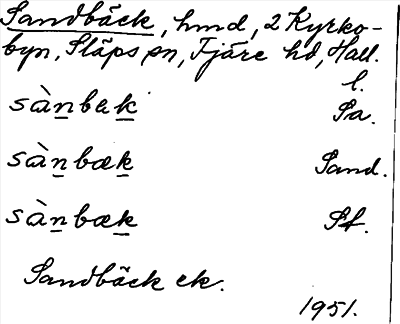 Sandbäck, hmd, 2 Kyrko-
byn, Släps sn, Fjäre hd, Hall.
l.
sànbɛk Sa.
sànbæk Sand.
sànbæk St.
Sandbäck ek.
1951.